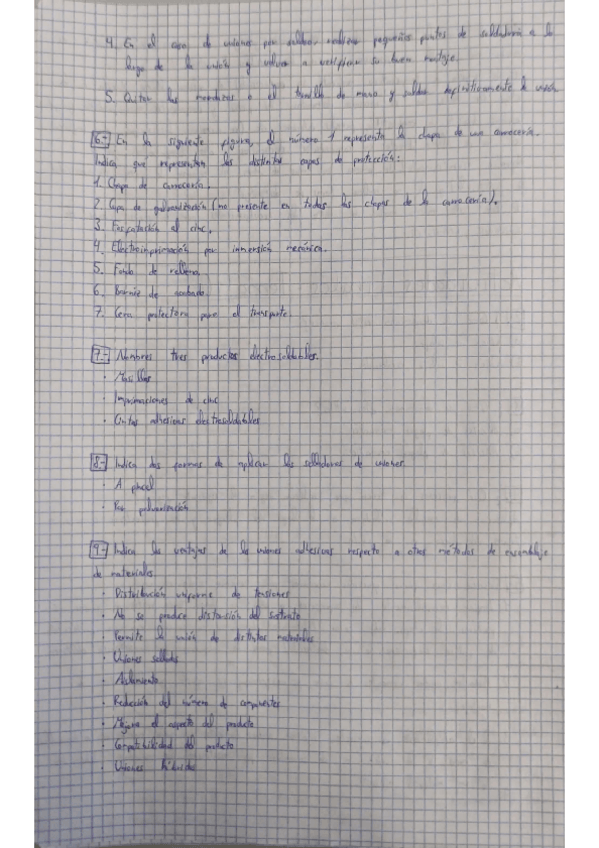 4. En el caso de uniones por soldeo realizar pequeños puntos de soldadura a lo
largo de la unión y volver a verificar su buen montaje.
5. Quitar las mordazas o el tornillo de mano y soldar definitivamente la unión
6- En la siguiente figura, el número 1 representa la chapa de una carrocería.
Indica que representan las distintas capas de protección:
1. Chapa de carrocería.
2. Capa de galvanización (no presente en todas las chapas de la carrocería).
3. Fosfatación al cinc.
4. Electroimprimación por inmersión
5. Fondo de relleno.
6. Barniz de acabado.
7. Cera protectora para el transporte.
7.- Nombres tres productos electrosoldables.
· Masillas
· Imprimaciones de cinc
· Cintas adhesivas electrosoldables
8- Indica dos formas de aplicar los selladores de uniones.
· A pincel
· Por pulverización
9- Indica las ventajas de las uniones adhesivas respecto a otros métodos de ensamblaje
de materiales.
· Distribución uniforme de tensiones
· No se produce distorsión del sustrato
· Permite la unión de distintos materiales
· Uniones selladas
· Aislamiento
· Reducción del número de componentes
· Mejora el aspecto del producto
· Compatibilidad del producto
· Uniones híbridas